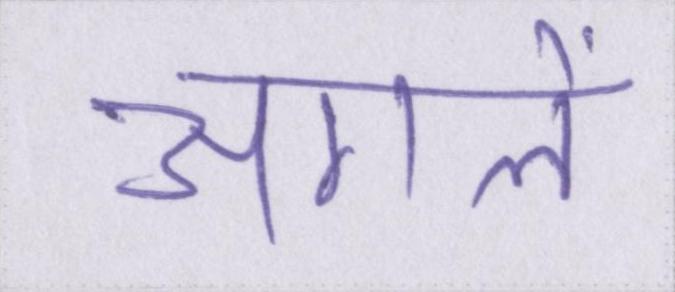 अगलें